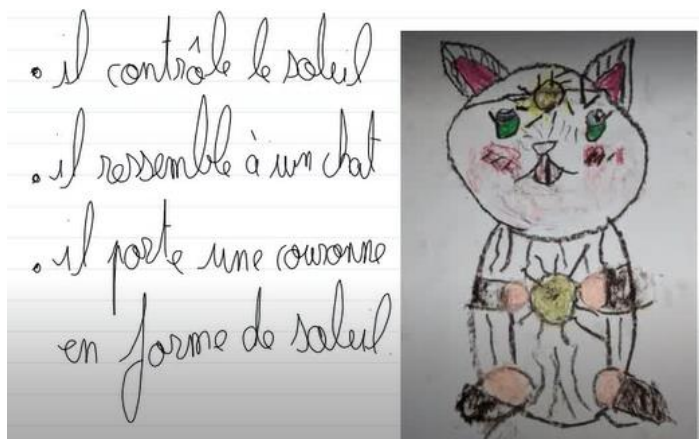 • il contrôle le soleil
• il ressemble à un chat
• il porte une couronne
en forme de soleil